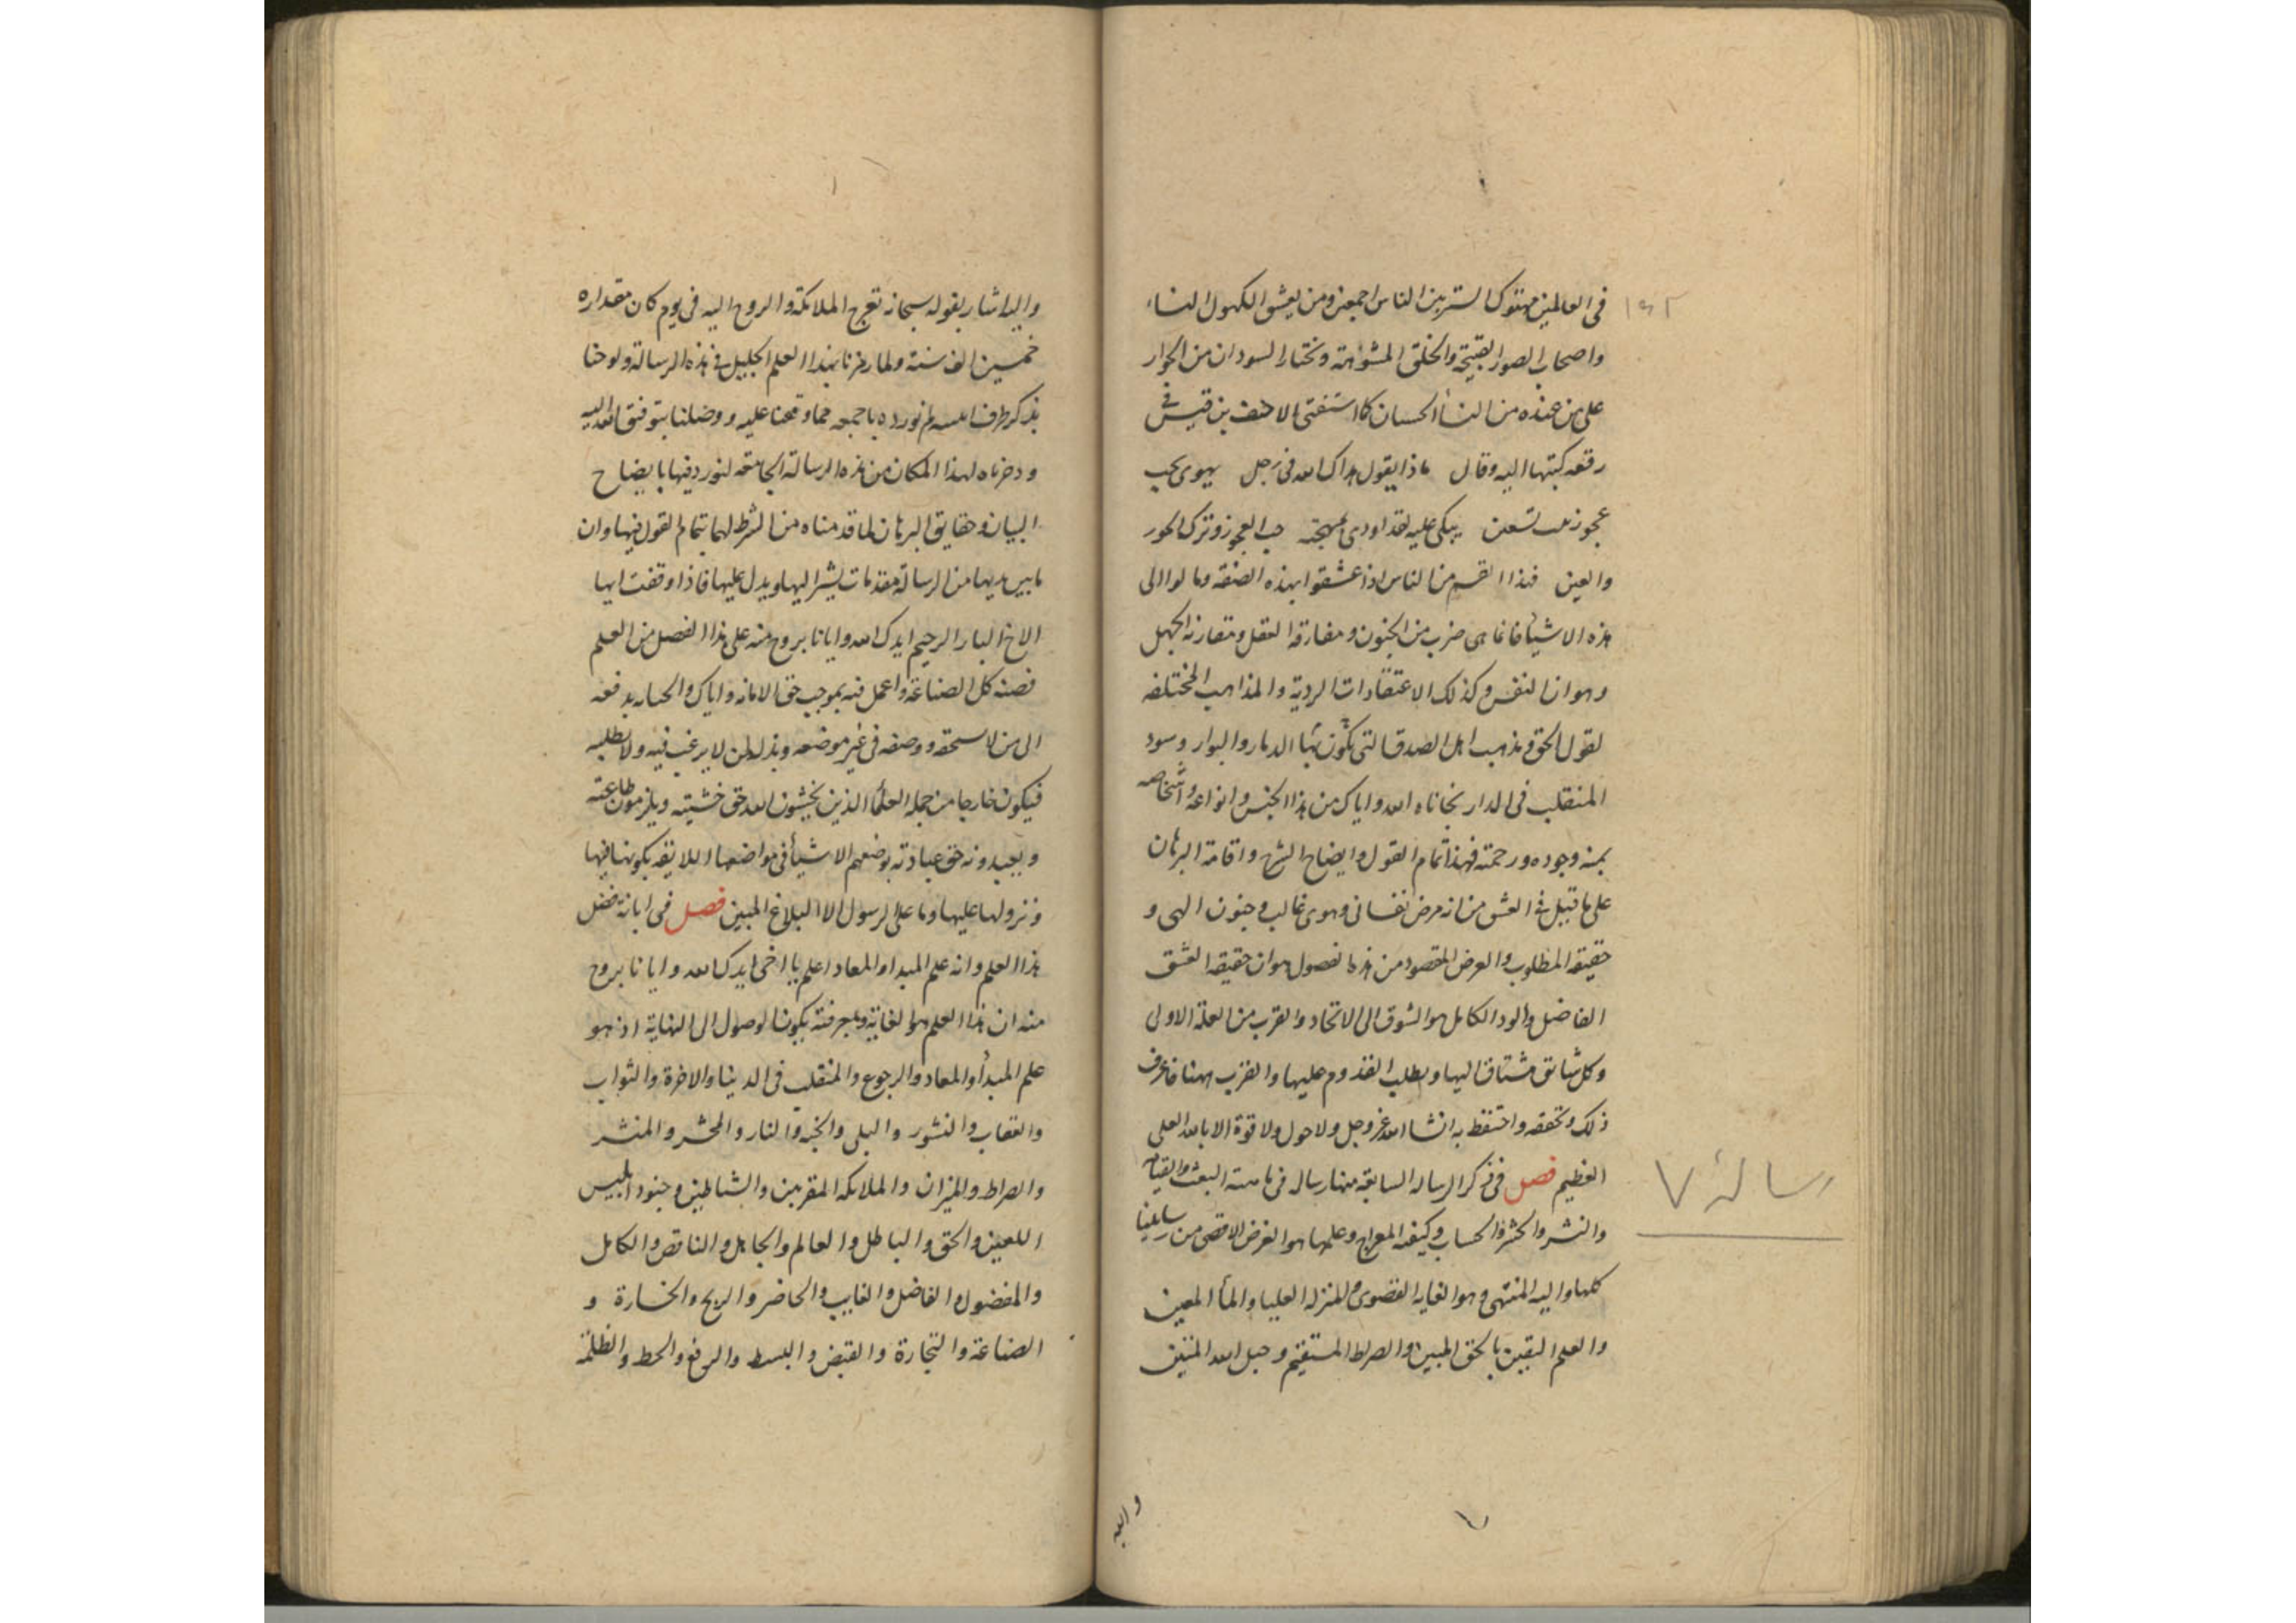 ١٥٢
في العالمين مهتوك الستر بين الناس اجمعين ومن يعشق الكهول النساء
واصحاب الصور القبيحة والخلق المشوهة ونختار السودان من الجوار
على من عنده من النسأ الحسان كما استفتى الاحنف بن قيس في
رقعه كتبها اليه وقال ماذا يقول هداك الله في رجل يهوى يحب
عجوز تسعين يبكى عليه لقد اودى بمهجته حب العجوز وترك الحور
والعين فهذا القسم من الناس اذا عشقوا بهذه الصفه ومالوا الى
هذه الاشيأ فانما هى ضرب من الجنون ومفارقه العقل ومقارنه الجهل
وهوان النفس وكذلك الاعتقادات الردية والمذاهب المختلفه
لقول الحق ومذهب اهل الصدق التى تكون بها الدمار والبوار وسود
المنقلب في الدار نجانا الله واياك من هذا الجنس وانواعه واشخاصه
بمنه وجوده ورحمته فهذا تمام القول وايضاح الشرح واقامة البرهان
على ما قيل في العشق من انه مرض نفسانى وهوى غالب وجنون الهى و
حقيقه المطلوب والغرض المقصود من هذه الفصول هو ان حقيقه العشق
الفاضل والود الكامل هو الشوق الى الاتحاد والقرب من العلة الاولى
وكل شائق مشتاق اليها ويطلب القدوم عليها والقرب منها فاعرف
ذلك وتحققه واحتفظ به انشا الله عز وجل ولا حول ولا قوة الا بالله العلى
العظيم فصل في ذكر الرساله السابقه منها رساله في ماهية البعث والقيامه
والنشر والحشر والحساب وكيفيه المعراج وعلمها هو الغرض الاقصى من رسايلنا
كلها واليه المنتهى وهو الغايه القصوى والمنزله العليا والمأ المعين
والعلم اليقين بالحق المبين والصراط المستقيم وحبل الله المتين
رسالة ٧
واليه
واليه اشار بقوله سبحانه تعرج الملائكة والروح اليه في يوم كان مقداره
خمسين الف سنة ولما رمزنا بهذا العلم الجليل في هذه الرسالة ولوحنا
بذكر طرف لم نورده باجمعه مما وقعنا عليه ووصلنا بتوفيق الله اليه
وذخرناه لهذا المكان من هذه الرسالة الجامعه لنورد فيها بايضاح
البيان وحقايق البرهان لما قدمناه من الشرط لها بتمام القول فيها وان
ما بين يديها من الرسالة مقدمات يشير اليها ويدل عليها فاذا وقفت ايها
الاخ البار الرحيم ايدك الله وايانا بروح منه على هذا الفصل من العلم
فصنه كل الصناعة واعمل فيه بموجب حق الامانه واياك والخيانه بدفعه
الى من لا يستحقه ووصفه في غير موضعه وبذله لمن لا يرغب فيه ولا يطلبه
فيكون خارجا من جمله العلمأ الذين يخشون الله حق خشيته ويلزمون طاعته
ويعبدونه حق عبادته بوضعهم الاشيأ في مواضعها اللائقه بكونها فيها
ونزولها عليها وما على الرسول الا البلاغ المبين فصل في ابانة فضل
هذا العلم وانه علم المبدا والمعاد اعلم يا اخى ايدك الله وايانا بروح
منه ان هذا العلم هو الغاية وبمعرفته يكون الوصول الى النهاية اذ هو
علم المبدأ والمعاد والرجوع والمنقلب في الدينا والاخرة والثواب
والعقاب والنشور والبلى والجنه والنار والمحشر والمنشر
والصراط والميزان والملائكه المقربين والشياطين وجنود ابليس
اللعين والحق والباطل والعالم والجاهل والناقص والكامل
والمفضول والفاضل والغايب والحاضر والربح والخسارة و
الصناعة والتجارة والقبض والبسط والرفع والحط والظلمة